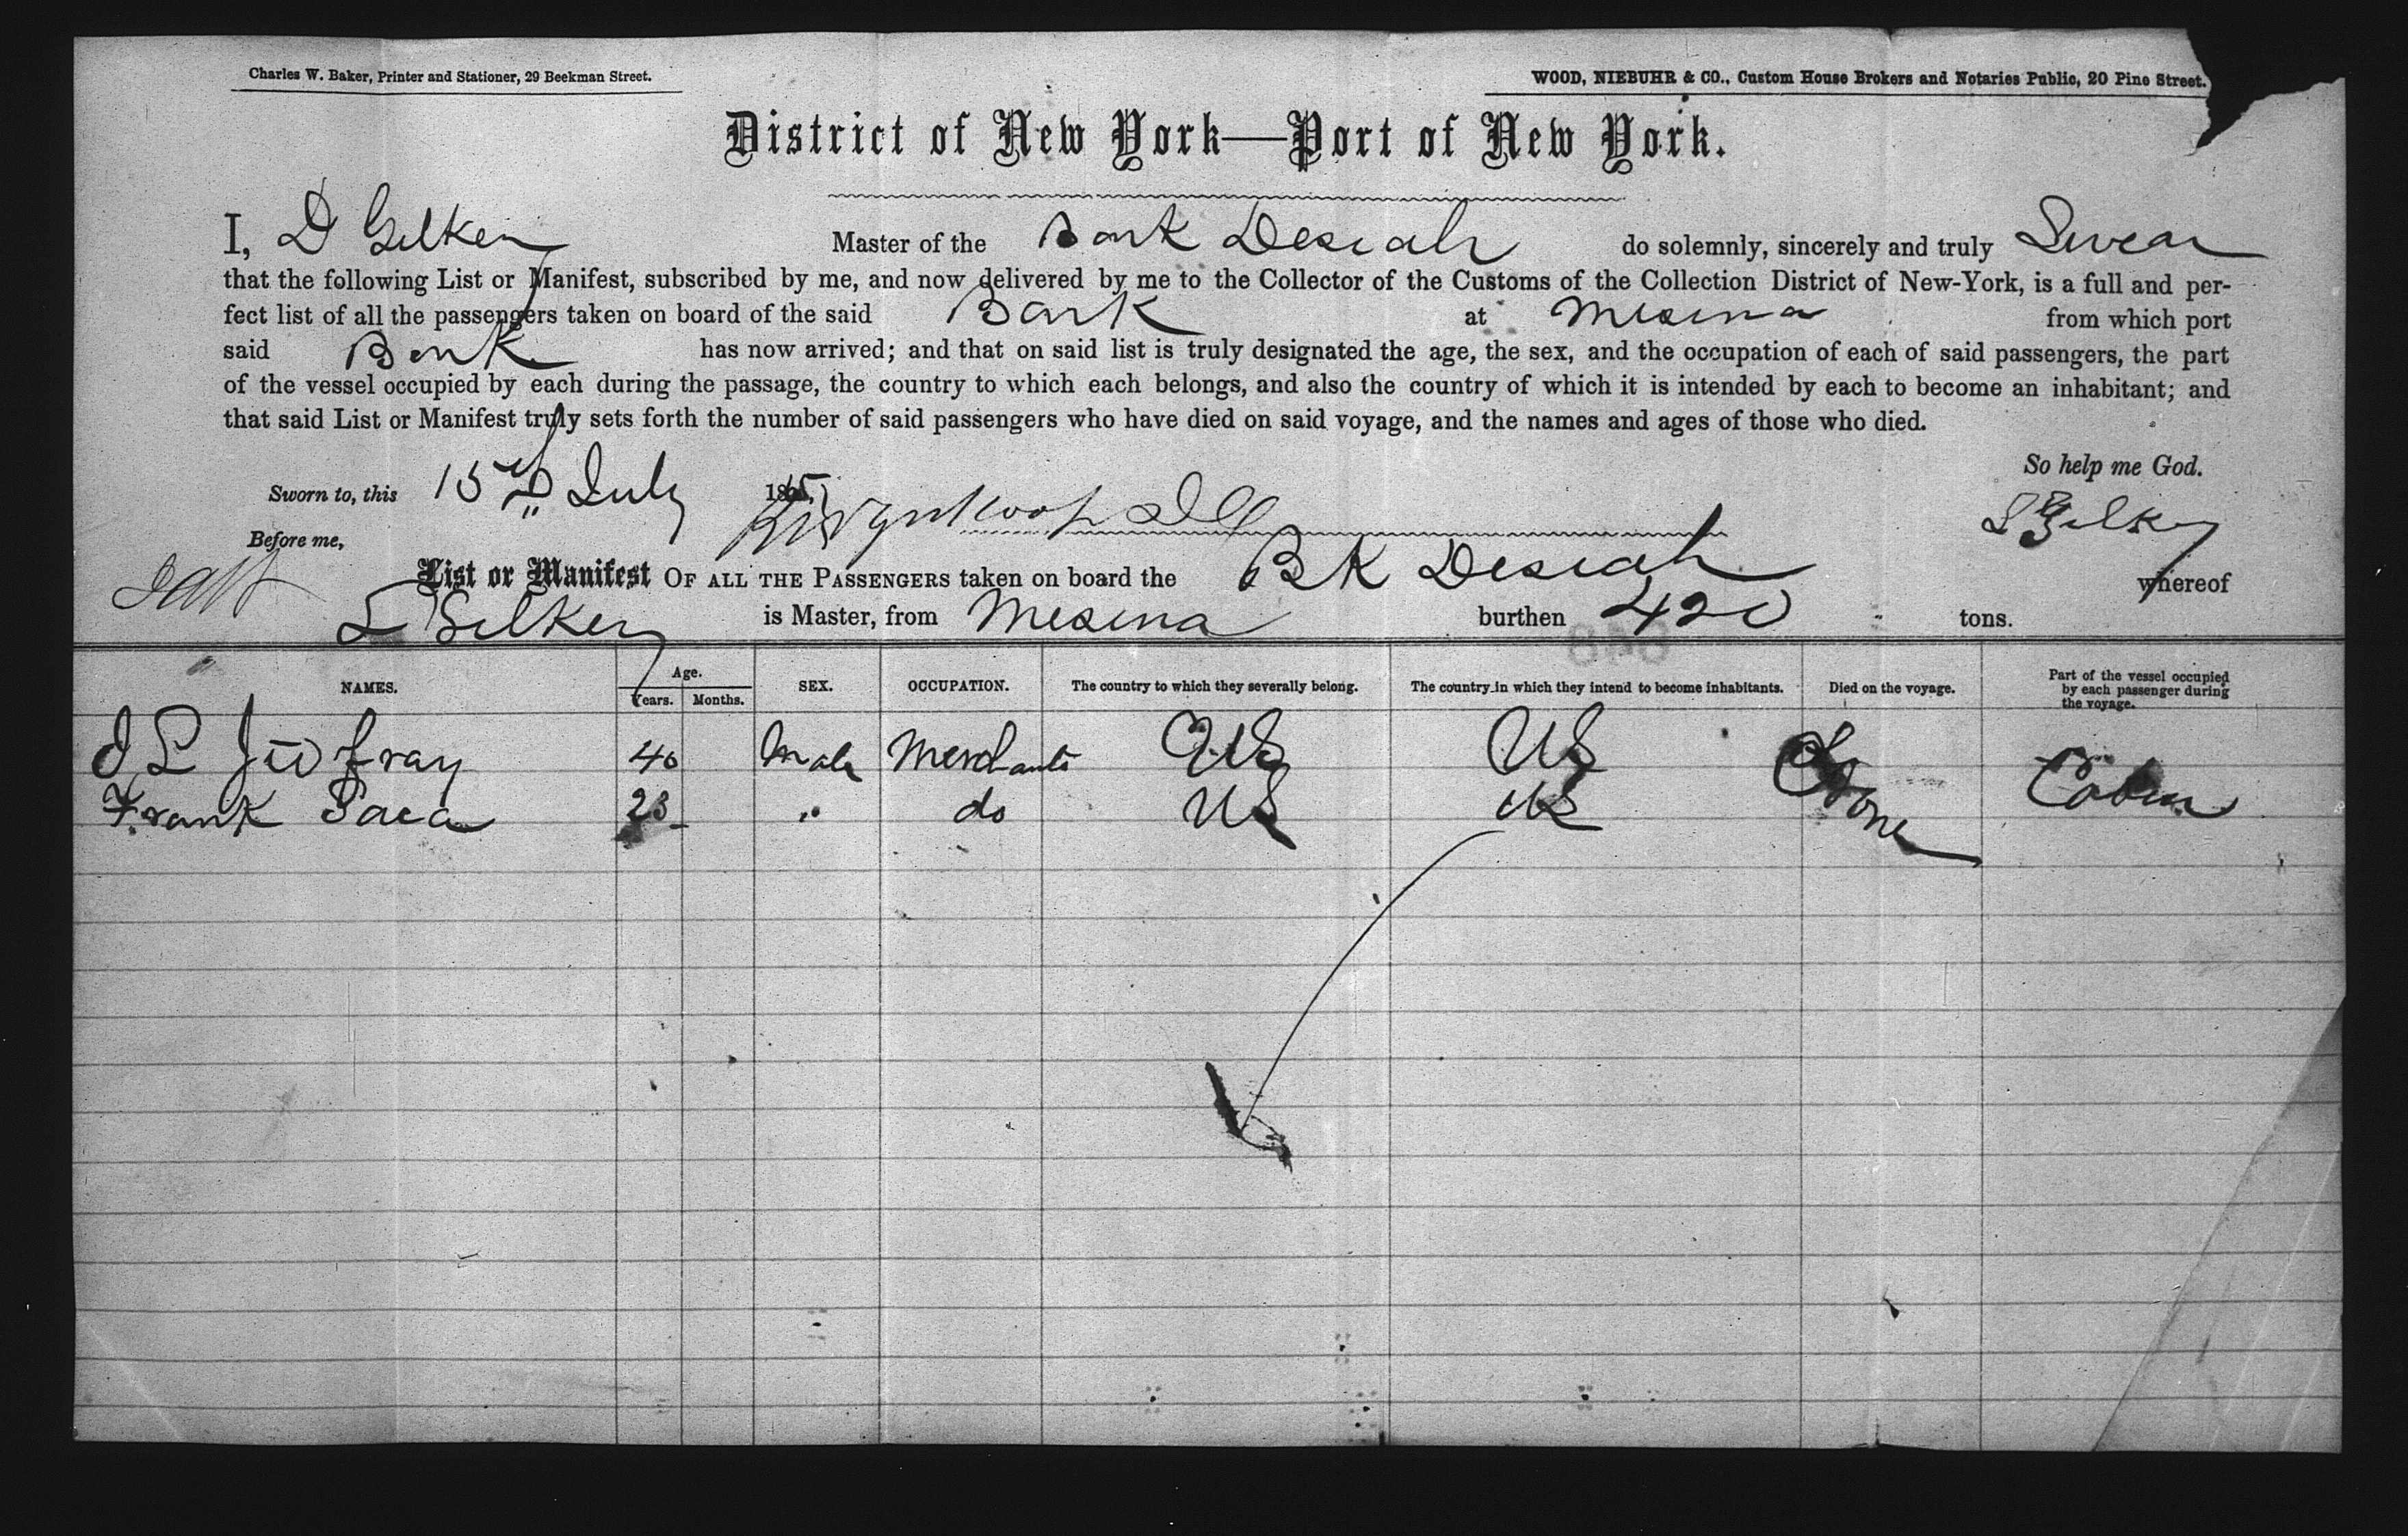 Charles W. Baker, Printer and Stationer, 29 Beekman Street.
WOOD, NIEBUHR & CO., Custom House Brokers and Notaries Public, 20 Pine Street.
District of New York—Port of New York.
I, D Gilkey Master of the Bark Desiah do solemnly, sincerely and truly Swear
that the following List or Manifest, subscribed by me, and now delivered by me to the Collector of the Customs of the Collection District of New-York, is a full and per-
fect list of all the passengers taken on board of the said Bark at Mesina from which port
said Bark has now arrived; and that on said list is truly designated the age, the sex, and the occupation of each of said passengers, the part
of the vessel occupied by each during the passage, the country to which each belongs, and also the country of which it is intended by each to become an inhabitant; and
that said List or Manifest truly sets forth the number of said passengers who have died on said voyage, and the names and ages of those who died.
So help me God.
Sworn to, this 15th July 1865,
Gilkey
Before me,
List or Manifest OF ALL THE PASSENGERS taken on board the BK Desiah whereof
Gilkey is Master, from Mesina burthen 420 tons.
NAMES. Age. Years. Months. SEX. OCCUPATION. The country to which they severally belong. The country in which they intend to become inhabitants. Died on the voyage. Part of the vessel occupied by each passenger during the voyage.
40 Male Merchants US US None Cabin
Frank 23 " do US US